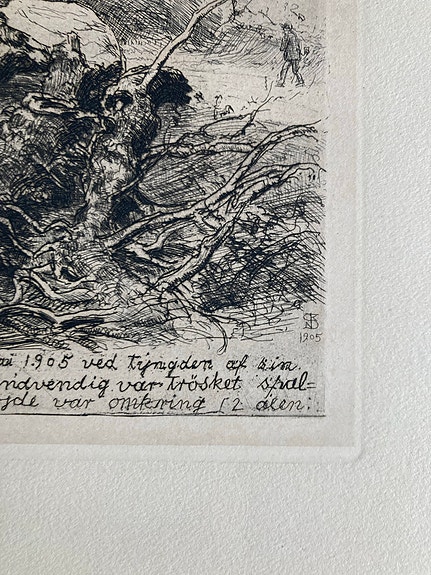 1905
ai 1905 ved tyngden af sin
ndvendig var trösket skal=
jde var omkring 12 alen.